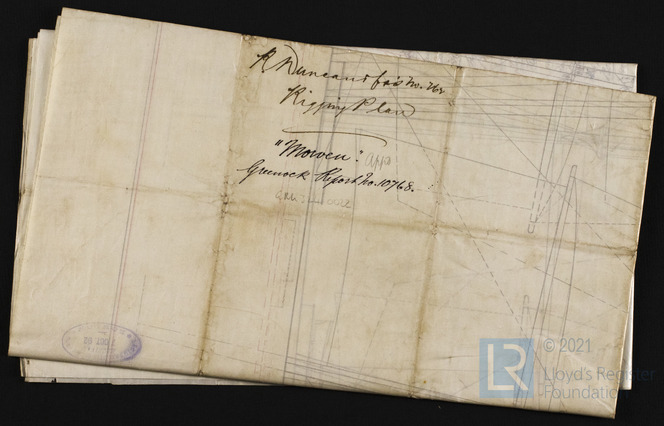 R Duncan & Co's No. 262
Rigging Plan
"Morven".
Greenock Report No. 10768.
7 OCT 02
LR
© 2021
Lloyd's Register
Foundation